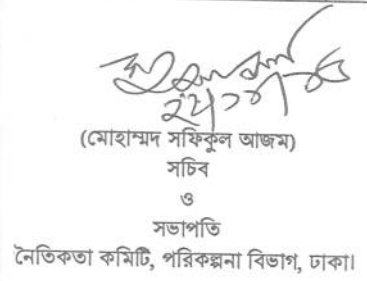 (মোহাম্মদ সফিকুল আজম)
সচিব
ও
সভাপতি
নৈতিকতা কমিটি, পরিকল্পনা বিভাগ, ঢাকা।